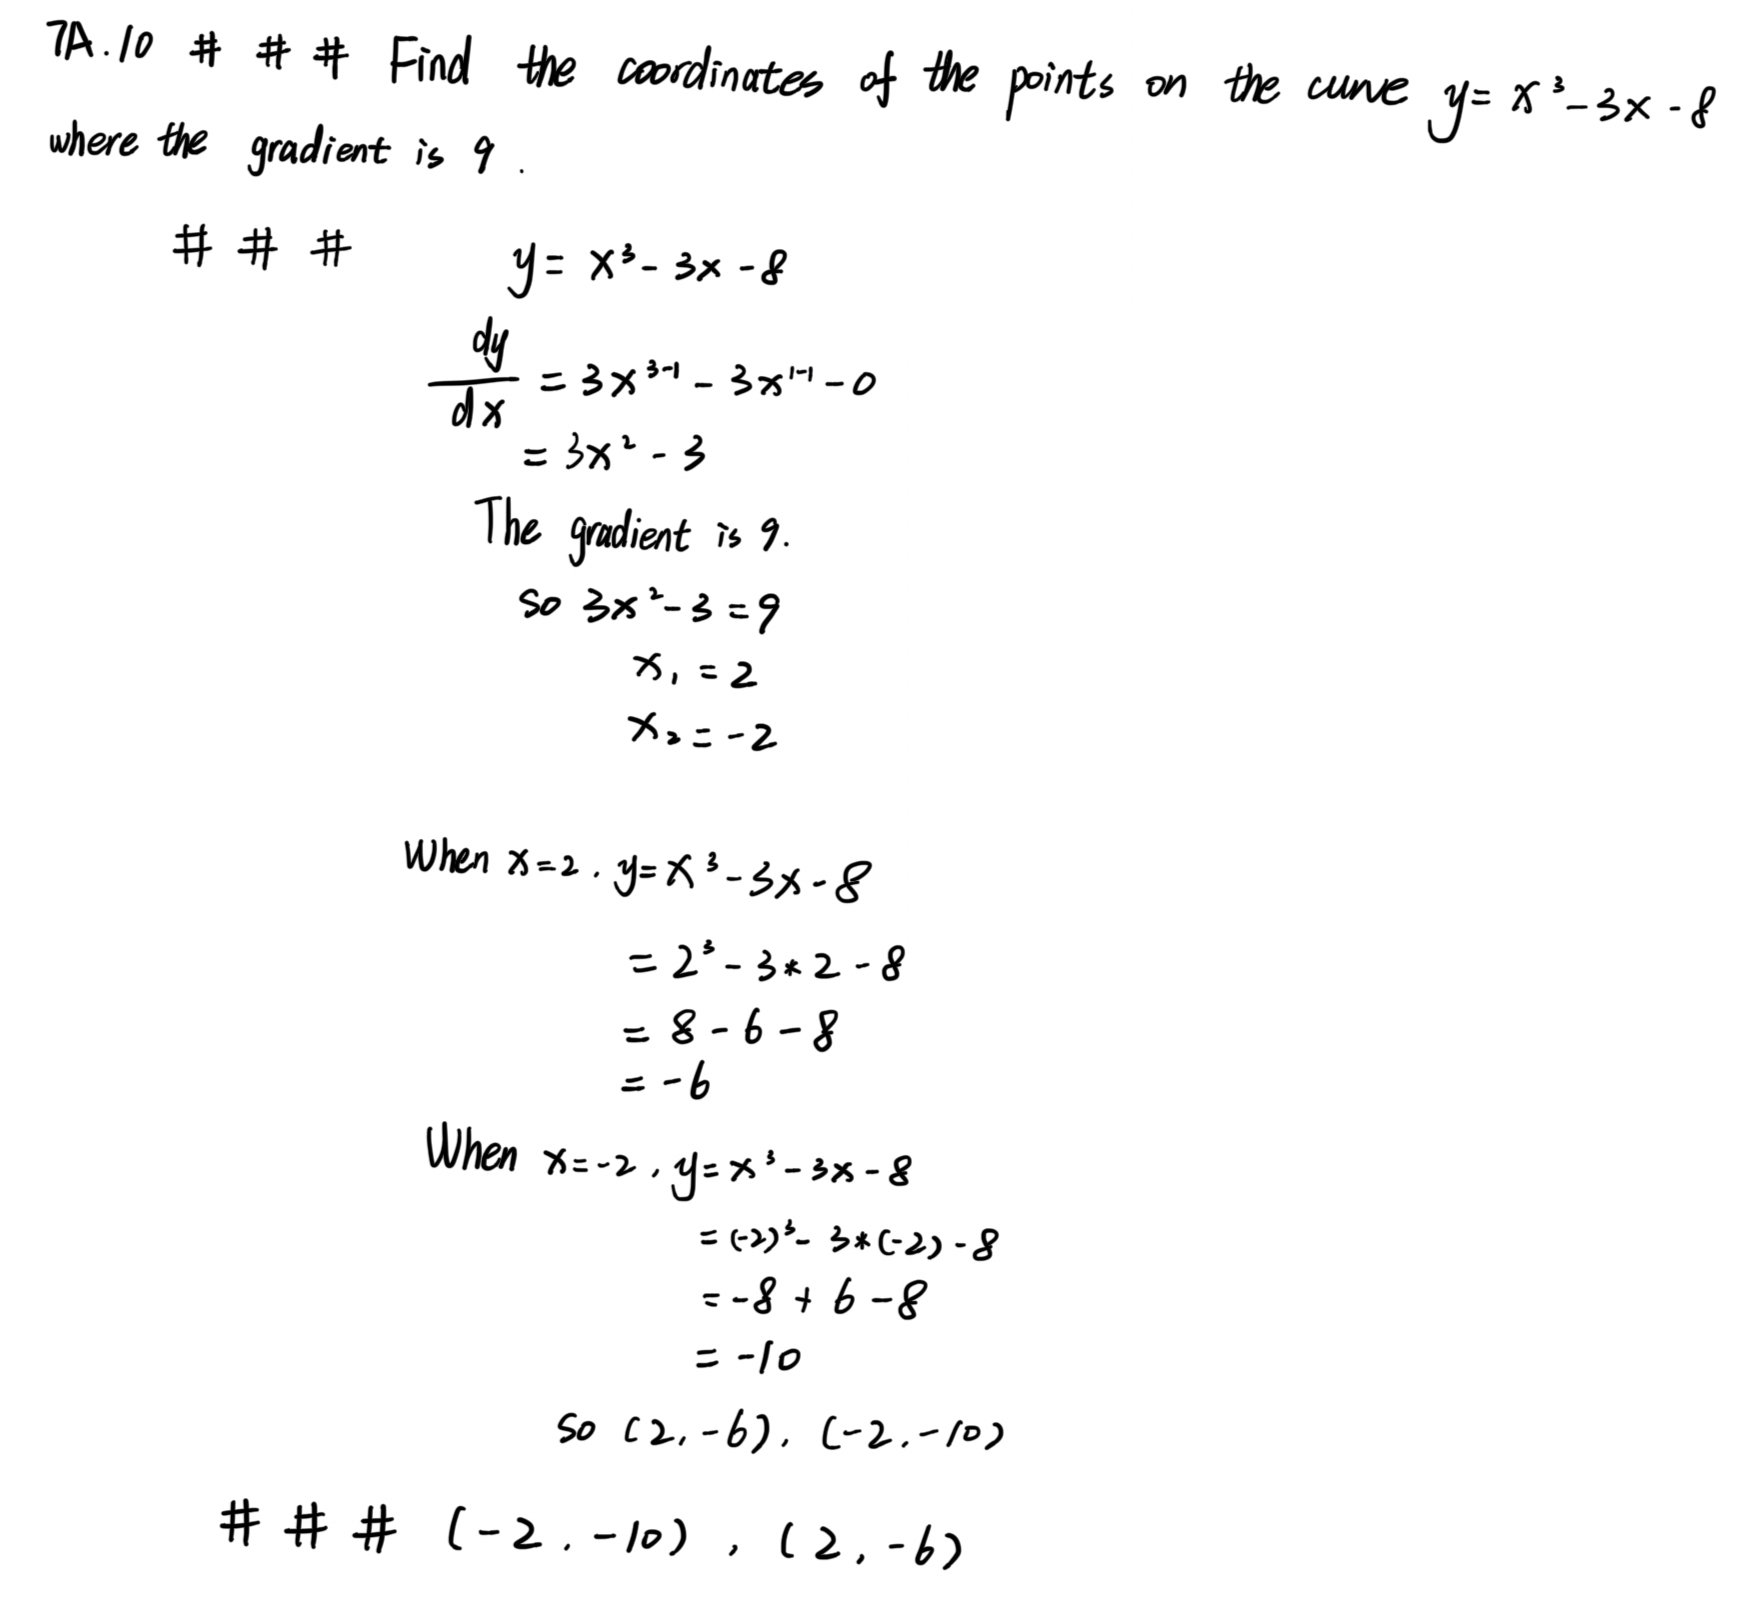 7A.10 # # # Find the coordinates of the points on the curve y = x³ - 3x - 8
where the gradient is 9.
# # # y = x³ - 3x - 8
dy/dx = 3x³⁻¹ - 3x¹⁻¹ - 0
= 3x² - 3
The gradient is 9.
so 3x² - 3 = 9
x₁ = 2
x₂ = -2
When x = 2, y = x³ - 3x - 8
= 2³ - 3 * 2 - 8
= 8 - 6 - 8
= -6
When x = -2, y = x³ - 3x - 8
= (-2)³ - 3 * (-2) - 8
= -8 + 6 - 8
= -10
so (2, -6), (-2, -10)
# # # (-2, -10), (2, -6)